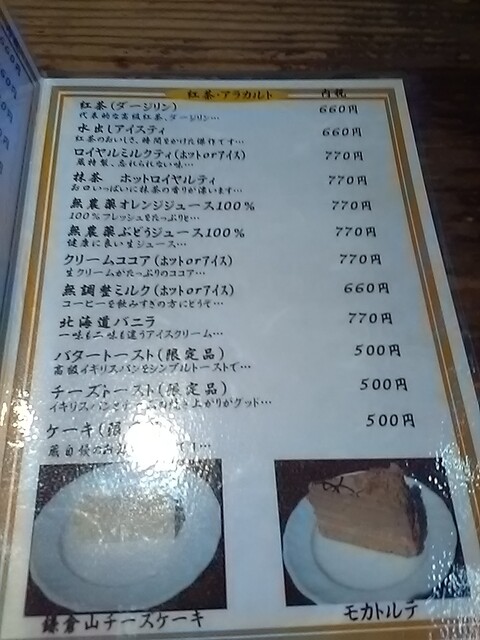 紅茶・アラカルト 内税
紅茶(ダージリン) 660円
代表的な高級紅茶、ダージリン…
水出しアイスティ 660円
紅茶のおいしさ、時間をかけた傑作です…
ロイヤルミルクティ(ホットorアイス) 770円
蔵特製、忘れられない味…
抹茶 ホットロイヤルティ 770円
お口いっぱいに抹茶の香りが漂います…
無農薬オレンジジュース100% 770円
100%フレッシュをたっぷりと…
無農薬ぶどうジュース100% 770円
健康に良い生ジュース…
クリームココア(ホットorアイス) 770円
生クリームがたっぷりのココア…
無調整ミルク(ホットorアイス) 660円
コーヒーを飲みすぎの方にどうぞ…
北海道バニラ 770円
一味も二味も違うアイスクリーム…
バタートースト(限定品) 500円
高級イギリスパンをシンプルトーストで…
チーズトースト(限定品) 500円
イギリスパンとチーズの 上がりがグッド…
ケーキ(限 500円
蔵自慢の
鎌倉山チーズケーキ
モカトルテ